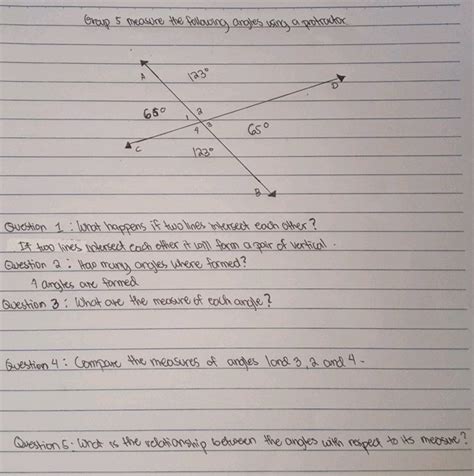 Group 5 measure the following angles using a protractor
A
123°
D
65°
1 2
4 3
65°
C
123°
B
Question 1 : What happens if two lines intersect each other?
If two lines intersect each other it will form a pair of vertical .
Question 2 : How many angles where formed?
4 angles are formed
Question 3 : What are the measure of each angle?
Question 4 : Compare the measures of angles 1 and 3, 2 and 4 -
Question 5 : What is the relationship between the angles with respect to its measure?